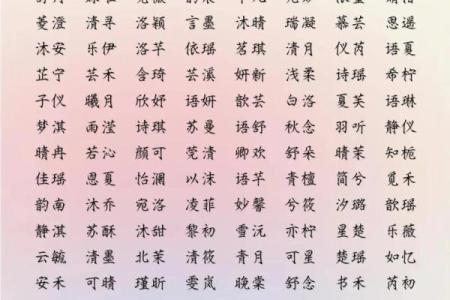 蔓澄 清寻 洛颖 言墨 沐晴 瑞凝 慕芸 思遥
沐安 乐伊 洛芊 依瑶 茗琪 清月 仪芮 语夏
芷宁 芸禾 含琦 芸溪 妍新 浅柔 诗瑶 希柠
子仪 曦月 欣妤 语妍 歆芸 白洛 夏芙 语琳
梦淇 雨滢 诗琪 苏曼 语舒 秋念 羽听 静仪
晴冉 若沁 颜可 莞清 卿欢 舒朵 晴茉 知栀
佳瑶 思夏 怡澜 以沫 语芊 青檀 简兮 觅禾
韵南 沐乔 宛洛 凌菲 妙馨 兮筱 汐璐 歆瑶
静淇 苏酥 沐甜 黎初 雪沅 亦柠 星楚 乐薇
云毓 清墨 北茉 清筱 青月 可星 楚瑶 如忆
安禾 可晴 瑾昕 雯岚 晚棠 舒念 书禾 芮初